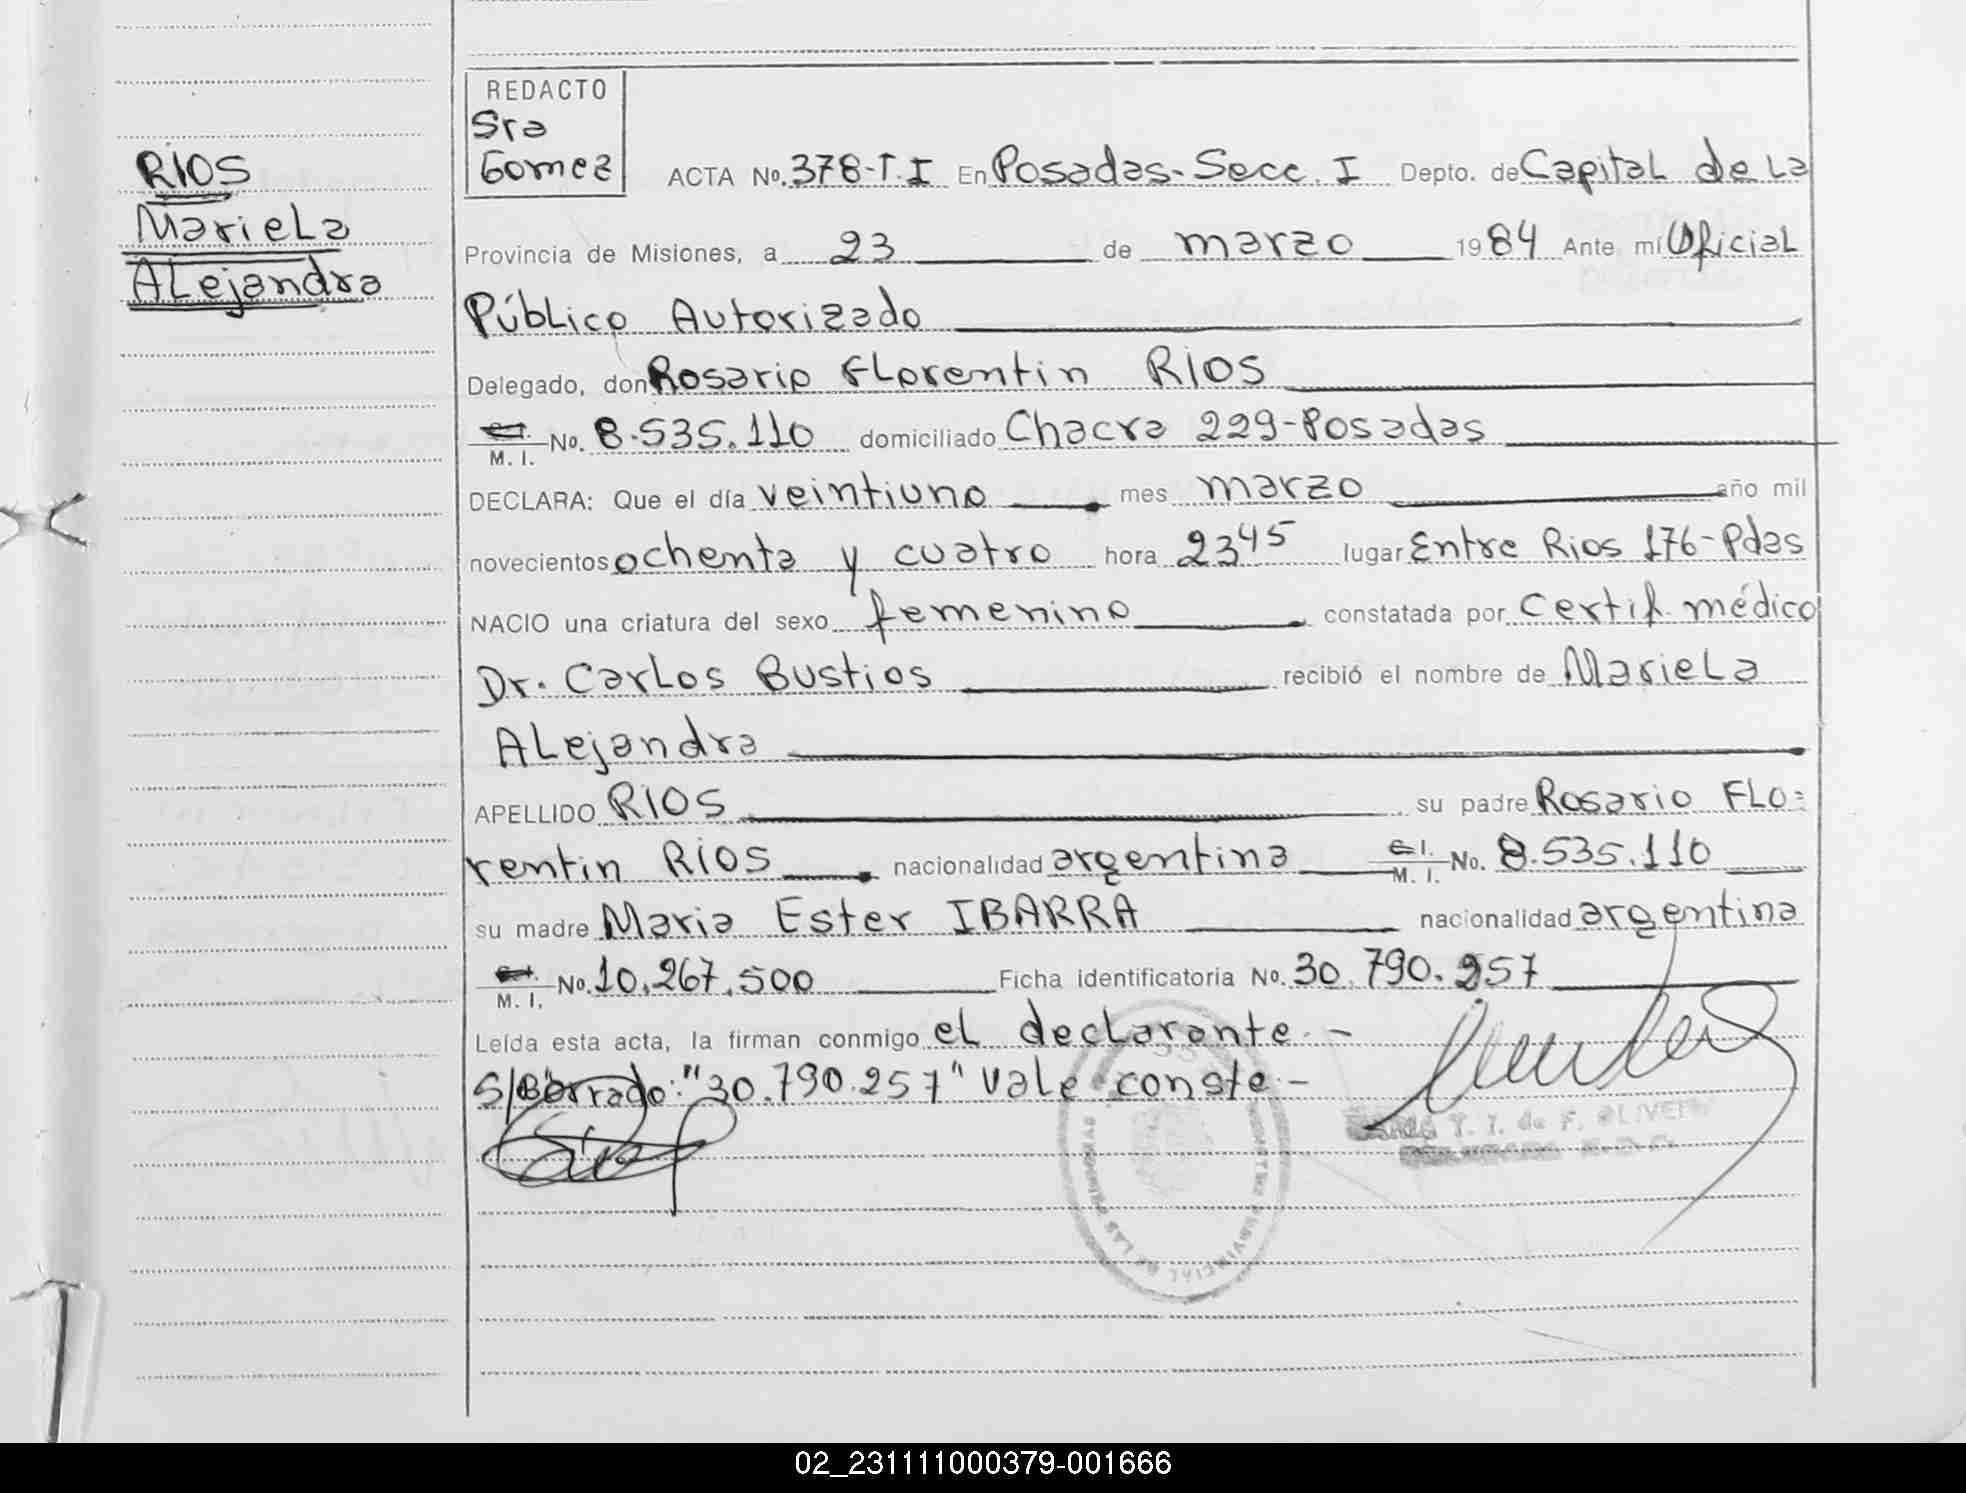 REDACTO
Sra
Gomez
RIOS
Mariela
Alejandra
ACTA No. 378-T.I En Posadas-Secc. I Depto. de Capital de la
Provincia de Misiones, a 23 de marzo 1984 Ante mí Oficial
Público Autorizado
Delegado, don Rosario Florentin RIOS
C.I. M.I. No. 8.535.110 domiciliado Chacra 229-Posadas
DECLARA: Que el día veintiuno mes marzo año mil
novecientos ochenta y cuatro hora 23 45 lugar Entre Rios 176-Pdas
NACIO una criatura del sexo femenino constatada por Certif. médico
Dr. Carlos Bustios recibió el nombre de Mariela
Alejandra
APELLIDO RIOS su padre Rosario Flo=
rentin RIOS nacionalidad argentina C.I. M.I. No. 8.535.110
su madre Maria Ester IBARRA nacionalidad argentina
C.I. M.I. No. 10.267.500 Ficha identificatoria No. 30.790.257
Leída esta acta, la firman conmigo el declarante.-
S/Borrado: "30.790.257" Vale conste.-
T. I. de F. OLIVER
PROVINCIAL DE LAS PERSONAS
02_231111000379-001666